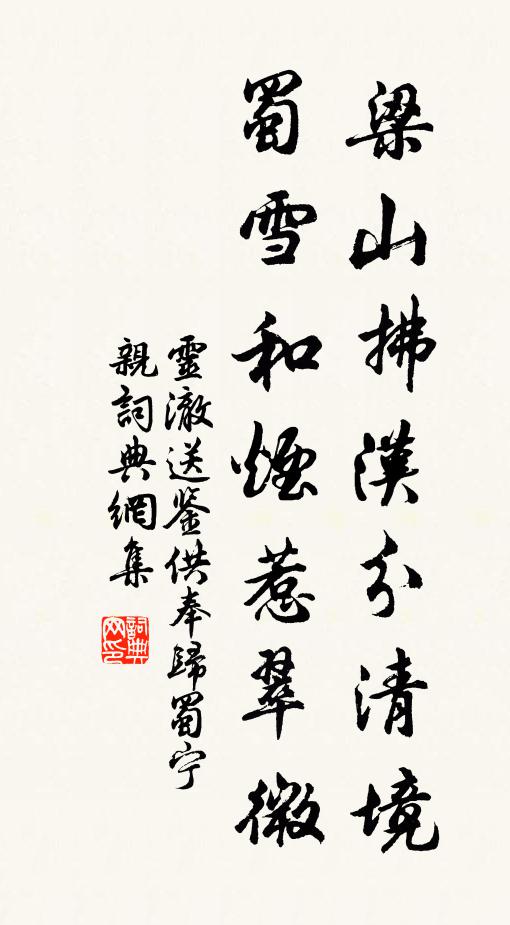 梁山拂漢分清境
蜀雪和煙惹翠微
靈澈送鉴供奉歸蜀宁
親詞典網集
詞典网印